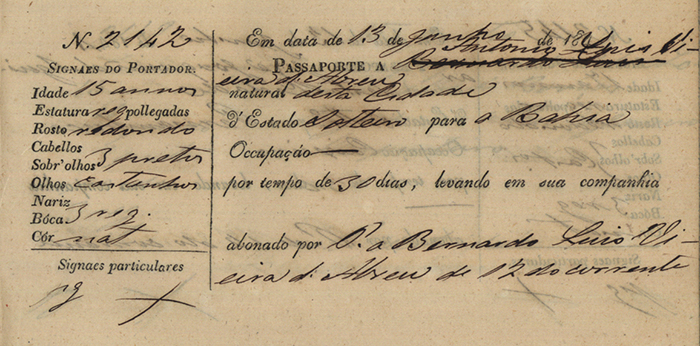 N. 2142
SIGNÃES DO PORTADOR.
Idade 15 annos
Estatura reg pollegadas
Rosto redondo
Cabellos
Sobr'olhos 3 pretos
Olhos castanhos
Nariz
Bôca 3 reg.
Côr nat
Signaes particulares
Em data de 13 de junho de 184
Antonio Luis Vi-
PASSAPORTE A Bernardo
eira d'Abreu
natural desta Cidade
d'Estado Solteiro para a Bahia
Occupação —
por tempo de 30 dias, levando em sua companhia
abonado por P. a Bernardo Luis Vi-
eira d'Abreu de 12 do corrente